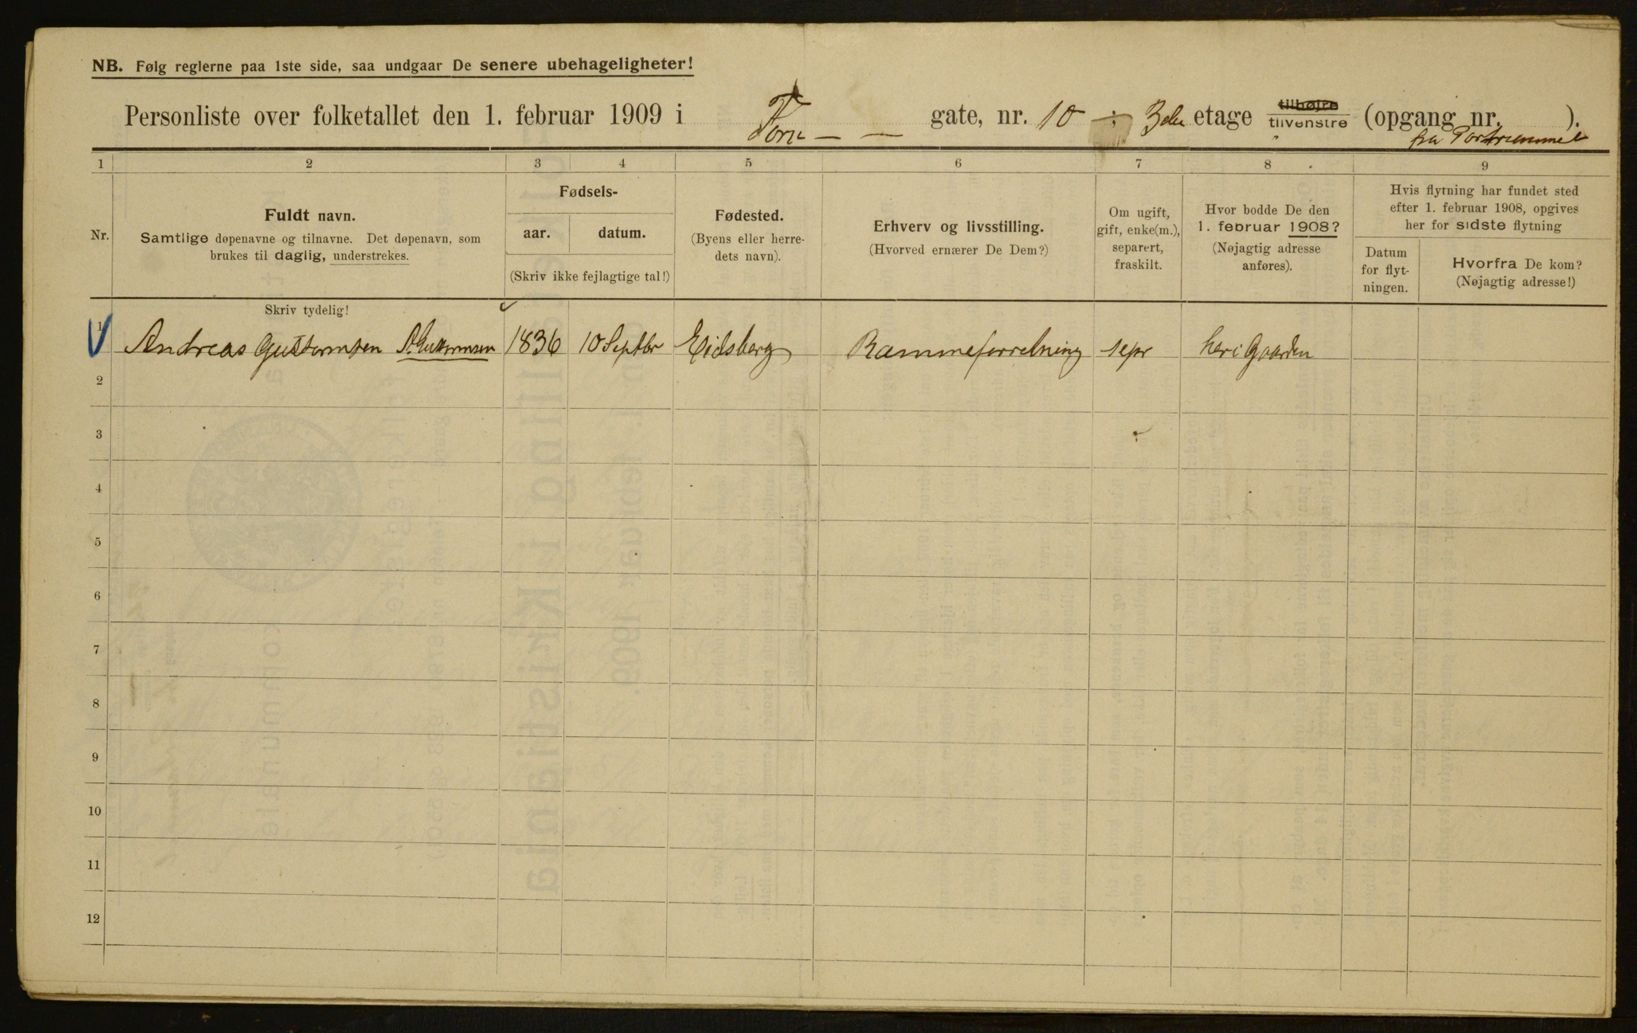 NB. Følg reglerne paa 1ste side, saa undgaar De senere ubehageligheter!
Personliste over folketallet den 1. februar 1909 i Torv — — gate, nr. 10 ÷ 3die etage tilhøire tilvenstre (opgang nr. ).
fra Portrummet
1 2 3 4 5 6 7 8 9
Nr.
Fuldt navn.
Samtlige døpenavne og tilnavne. Det døpenavn, som
brukes til daglig, understrekes.
Fødsels-
aar. datum.
(Skriv ikke fejlagtige tal!)
Fødested.
(Byens eller herre-
dets navn).
Erhverv og livsstilling.
(Hvorved ernærer De Dem?)
Om ugift,
gift, enke(m.),
separert,
fraskilt.
Hvor bodde De den
1. februar 1908?
(Nøjagtig adresse
anføres).
Hvis flytning har fundet sted
efter 1. februar 1908, opgives
her for sidste flytning
Datum
for flyt-
ningen.
Hvorfra De kom?
(Nøjagtig adresse!)
Skriv tydelig!
1 Andreas Guttormsen A. Guttormsen 1836 10 Septbr Eidsberg Rammeforretning sepr her i Gaarden
2
3
4
5
6
7
8
9
10
11
12